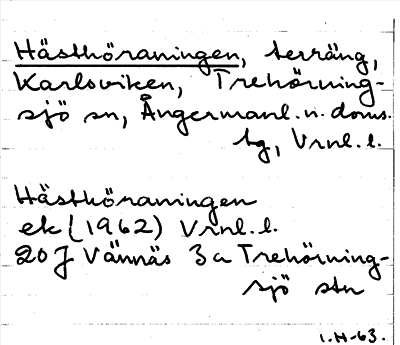 Hästköraningen, terräng,
Karlsviken, Trehörning-
sjö sn, Ångermanl. n. doms.
hg, Vrnl. l.
Hästköraningen
ek (1962) Vrnl. l.
20 J Vännäs 3 a Trehörning-
sjö stn
I.H-63.